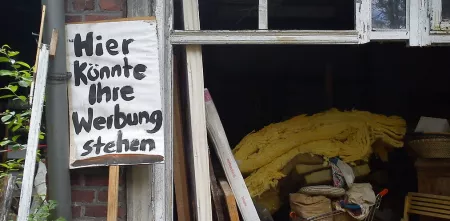 Hier
Könnte
Ihre
Werbung
stehen